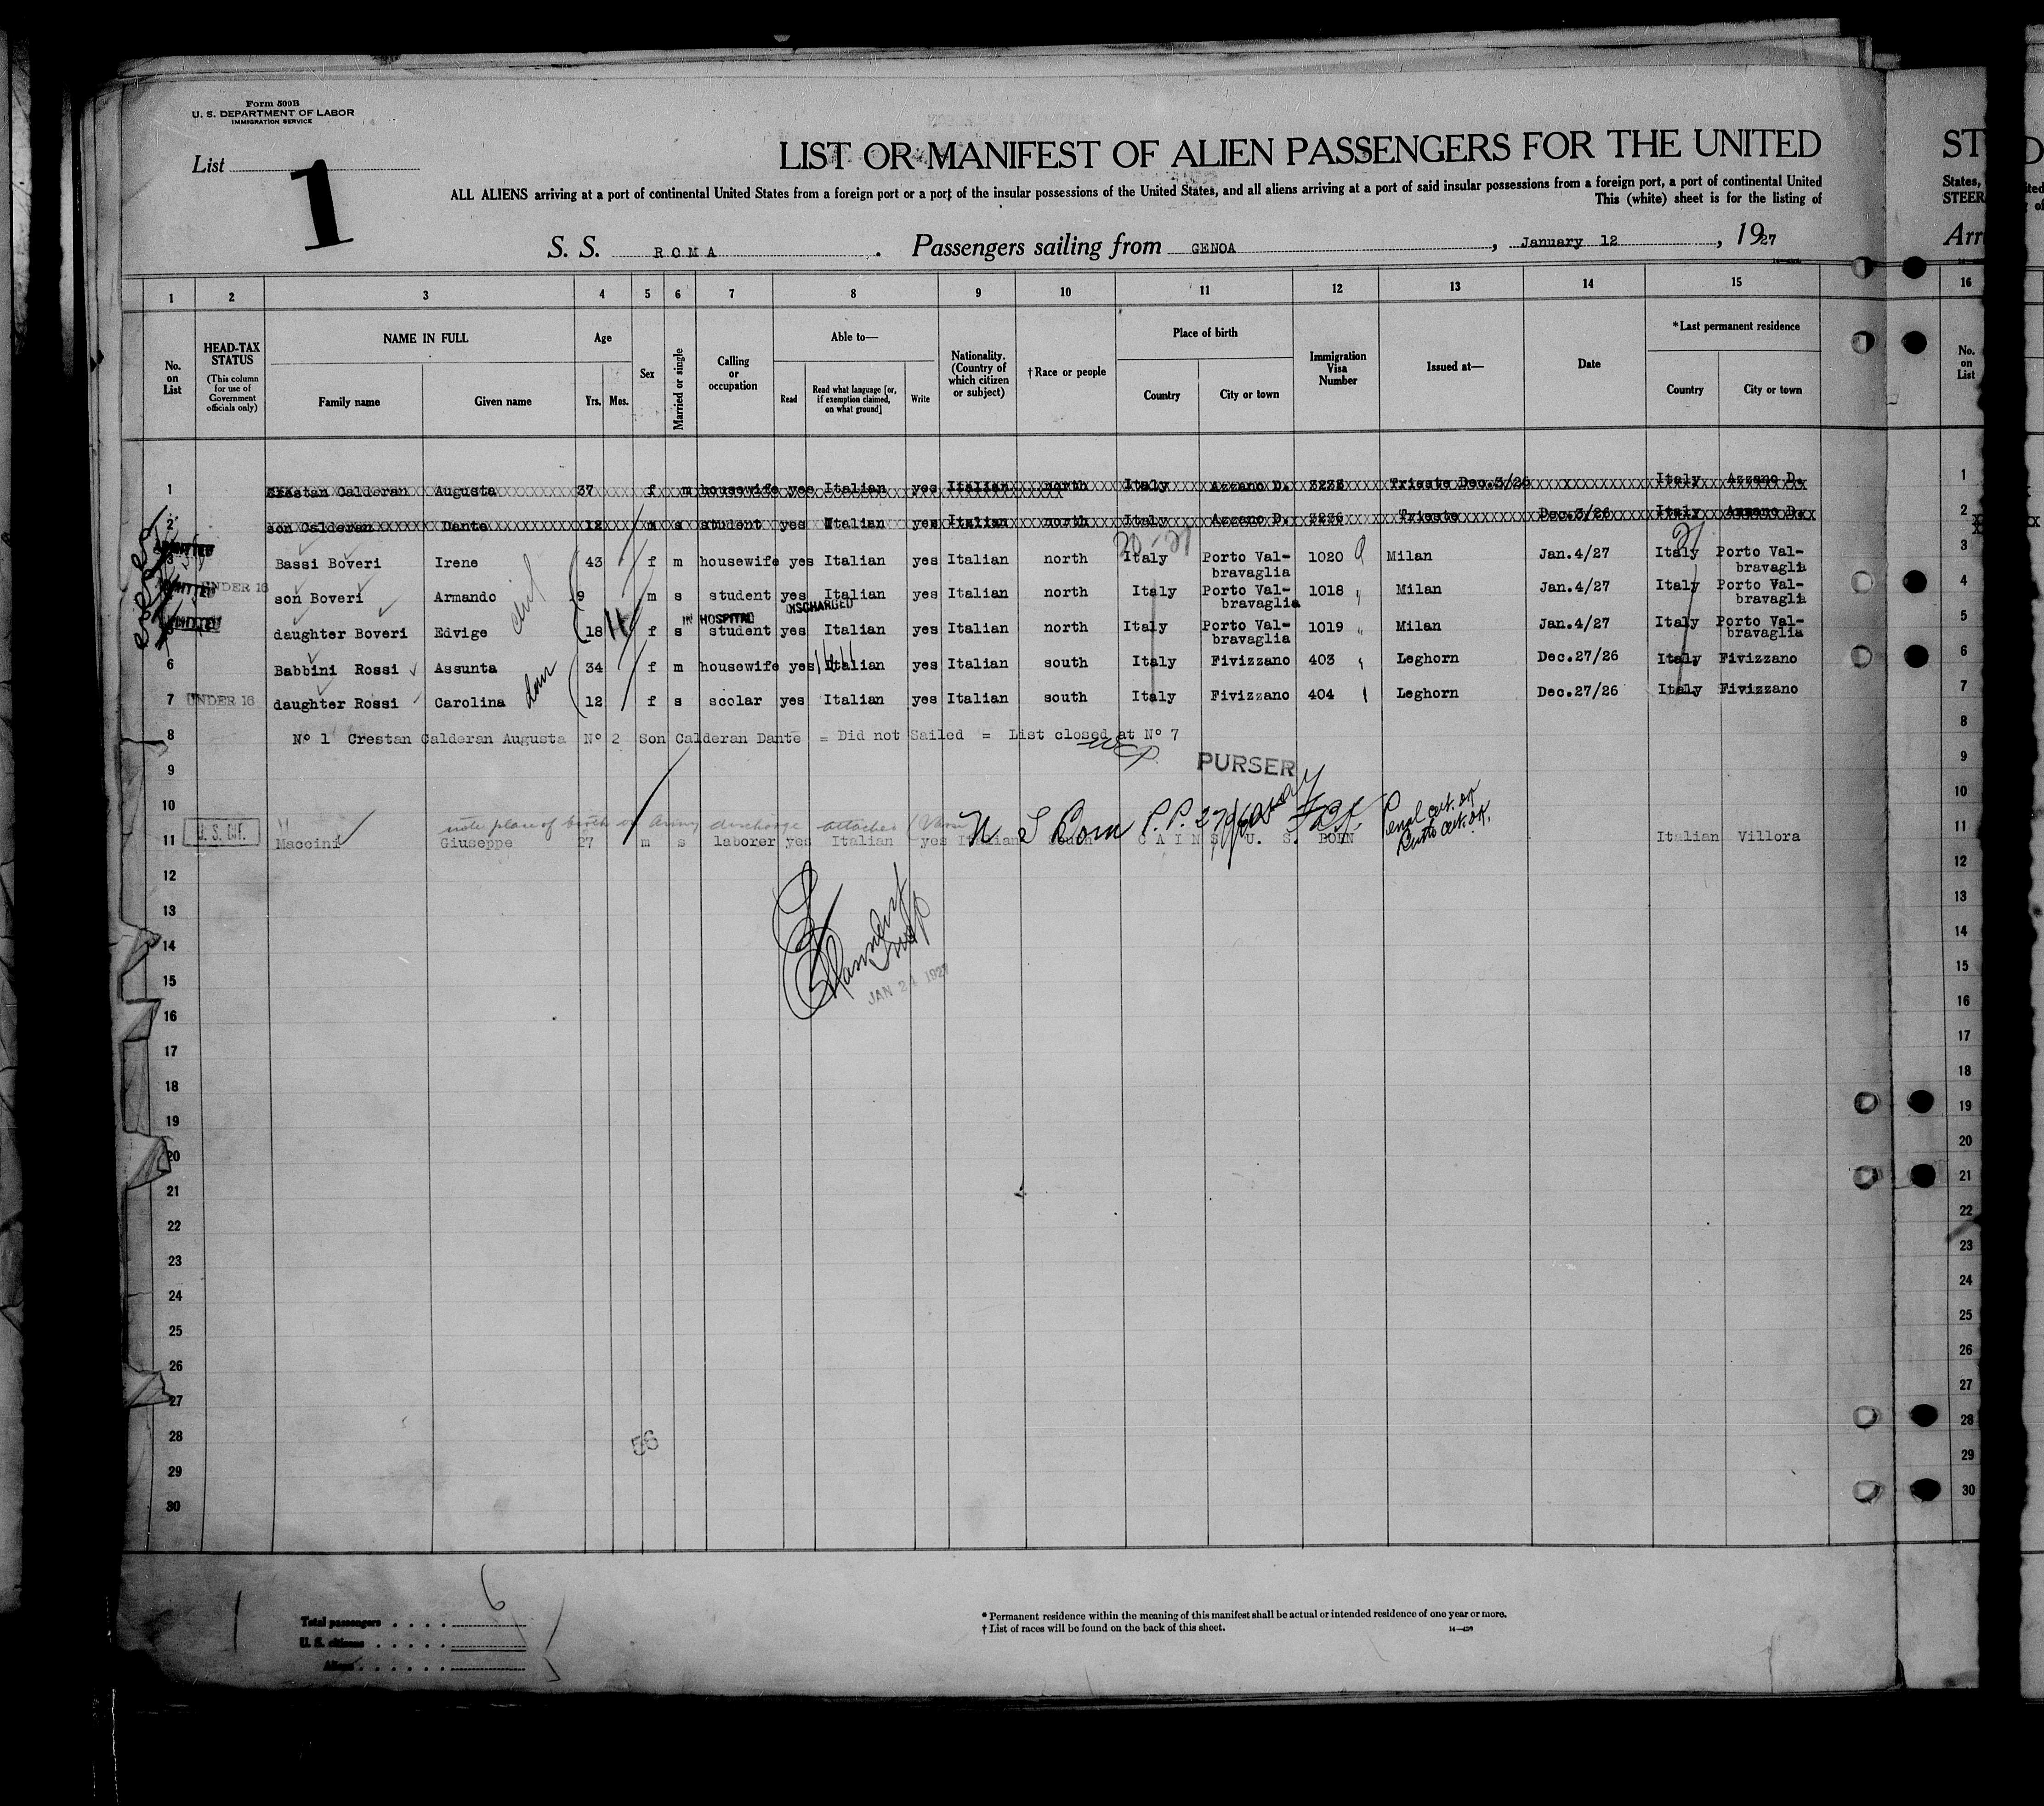 Form 500B
U. S. DEPARTMENT OF LABOR
IMMIGRATION SERVICE
List 1
LIST OR MANIFEST OF ALIEN PASSENGERS FOR THE UNITED
ALL ALIENS arriving at a port of continental United States from a foreign port or a port of the insular possessions of the United States, and all aliens arriving at a port of said insular possessions from a foreign port, a port of continental United
This (white) sheet is for the listing of
S. S. ROMA. Passengers sailing from GENOA, January 12, 1927
1 2 3 4 5 6 7 8 9 10 11 12 13 14 15
No. on List
HEAD-TAX STATUS (This column for use of Government officials only)
NAME IN FULL Family name Given name
Age Yrs. Mos.
Sex
Married or single
Calling or occupation
Able to— Read Read what language [or, if exemption claimed, on what ground] Write
Nationality. (Country of which citizen or subject)
†Race or people
Place of birth Country City or town
Immigration Visa Number
Issued at—
Date
*Last permanent residence Country City or town
1 Crestan Calderan Augusta 37 f m housewife yes Italian yes Italian north Italy Azzano D. 3235 Trieste Dec.3/26 Italy Azzano D.
2 son Calderan Dante 12 m s student yes Italian yes Italian north Italy Azzano D. 3236 Trieste Dec.3/26 Italy Azzano D.
ADMITTED
3 Bassi Boveri Irene 43 f m housewife yes Italian yes Italian north Italy Porto Val-bravaglia 1020 Milan Jan.4/27 Italy Porto Val-bravaglia
ADMITTED
4 UNDER 16 son Boveri Armando 9 m s student yes Italian yes Italian north Italy Porto Val-bravaglia 1018 Milan Jan.4/27 Italy Porto Val-bravaglia
IN HOSPITAL DISCHARGED
ADMITTED
5 daughter Boveri Edvige 18 f s student yes Italian yes Italian north Italy Porto Val-bravaglia 1019 Milan Jan.4/27 Italy Porto Val-bravaglia
6 Babbini Rossi Assunta 34 f m housewife yes Italian yes Italian south Italy Fivizzano 403 Leghorn Dec.27/26 Italy Fivizzano
7 UNDER 16 daughter Rossi Carolina 12 f s scolar yes Italian yes Italian south Italy Fivizzano 404 Leghorn Dec.27/26 Italy Fivizzano
8 Nº 1 Crestan Calderan Augusta Nº 2 Son Calderan Dante = Did not Sailed = List closed at Nº 7
9 PURSER
10
note place of birth on Army discharge attached
U S Born P.P.
Penal cert. ok
Birth cert. ok.
11 U. S. CIT. Maccini Giuseppe 27 m s laborer yes Italian yes Italian south CAINS U. S. BORN Italian Villora
12
13
14
15
JAN 24 1927
16
17
18
19
20
21
22
23
24
25
26
27
28
56
29
30
Total passengers 6
U. S. citizens
Aliens
* Permanent residence within the meaning of this manifest shall be actual or intended residence of one year or more.
† List of races will be found on the back of this sheet.
14—430
ST
States,
STEER
Arri
16
No. on List
1
2
3
4
5
6
7
8
9
10
11
12
13
14
15
16
17
18
19
20
21
22
23
24
25
26
27
28
29
30